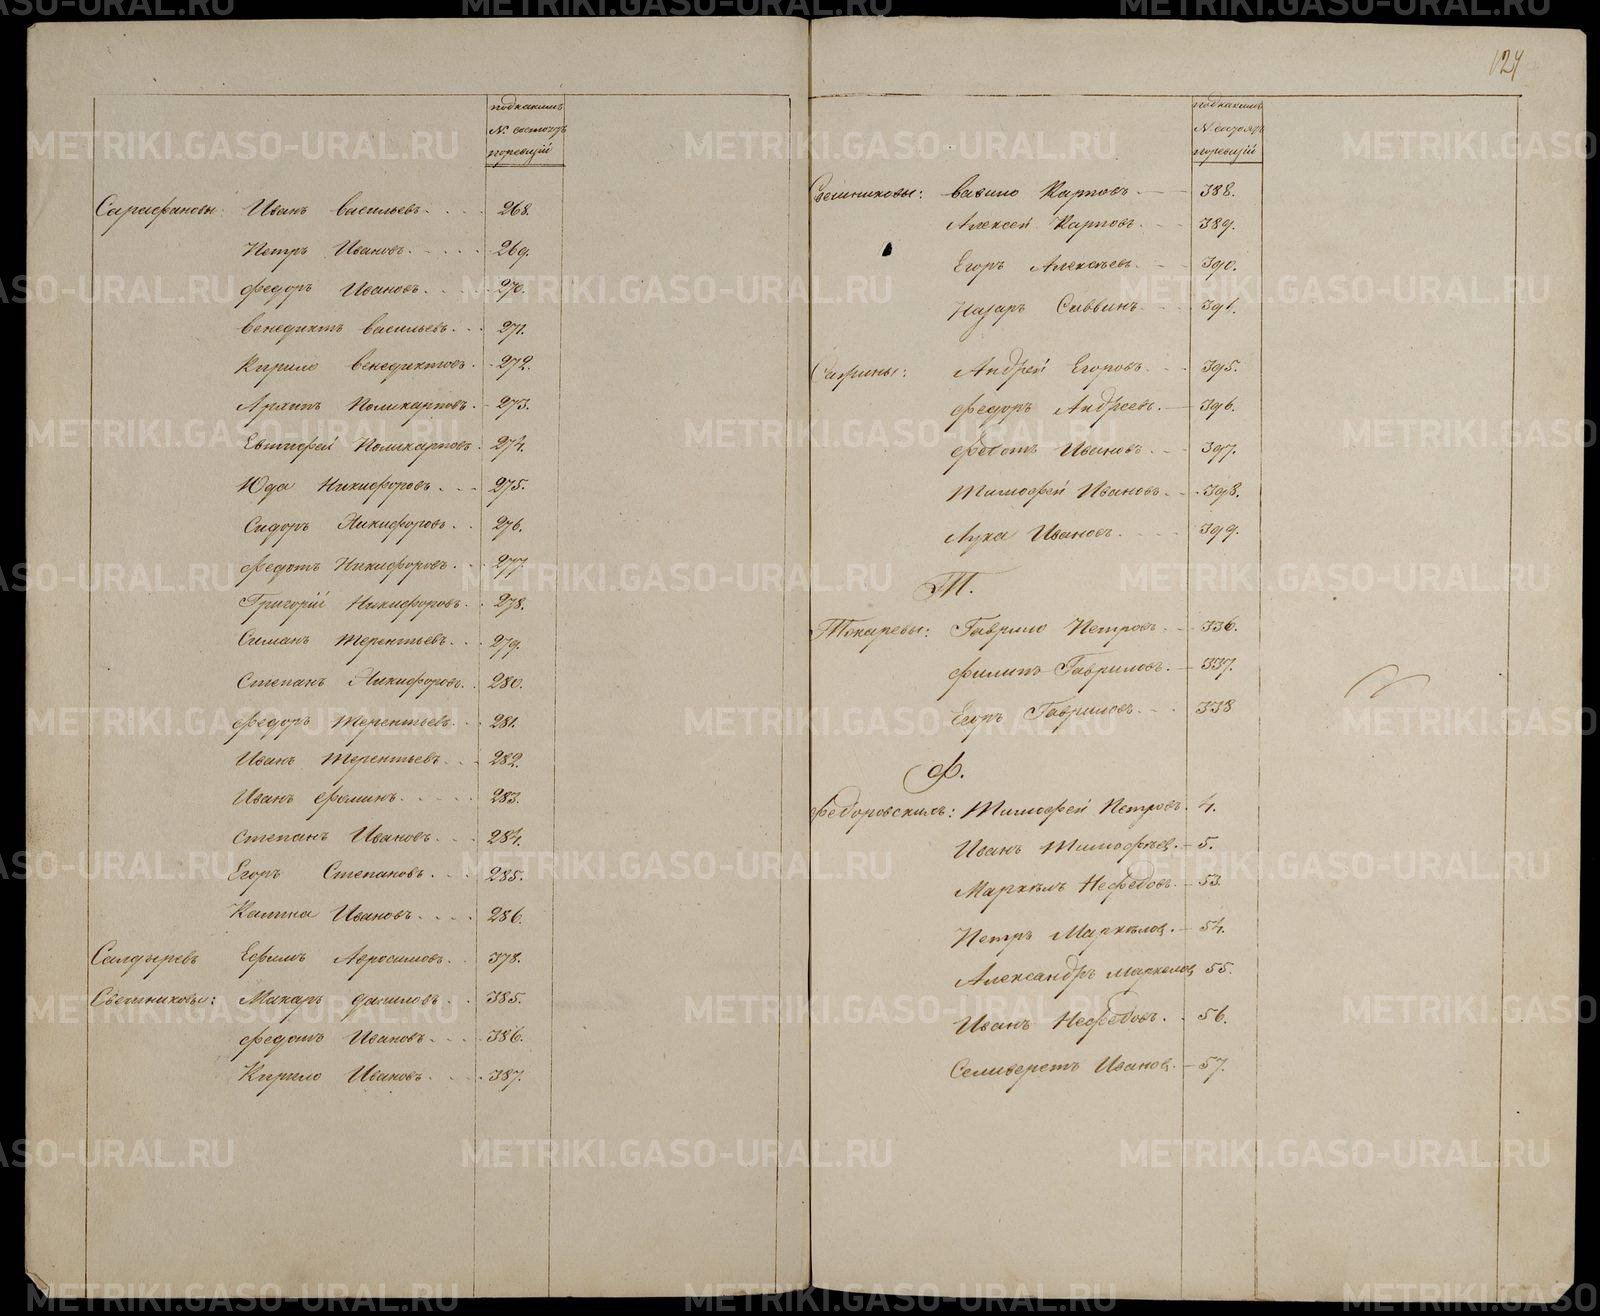 подъ какимъ
№ состоитъ
по ревизіи
Сарафановы: Иванъ Васильевъ 268.
Петръ Ивановъ 269.
Федоръ Ивановъ 270.
Венедиктъ Васильевъ 271.
Кирило Венедиктовъ 272.
Архипъ Поликарповъ 273.
Евтифей Поликарповъ 274.
Юда Никифоровъ 275.
Сидоръ Никифоровъ 276.
Федотъ Никифоровъ 277.
Григорій Никифоровъ 278.
Симанъ Терентьевъ 279.
Степанъ Никифоровъ 280.
Федоръ Терентьевъ 281.
Иванъ Терентьевъ 282.
Иванъ Фоминъ 283.
Степанъ Ивановъ 284.
Егоръ Степановъ 285.
Ивановъ 286.
Салдыревъ Ефимъ Абросимовъ 378.
Свешниковы: Макаръ Даниловъ 385.
Федотъ Ивановъ 386.
Кирило Ивановъ 387.
124
подъ какимъ
№ состоитъ
по ревизіи
Свешниковы: Вавило Карповъ 388.
Алексей Карповъ 389.
Егоръ Алексеевъ 390.
Назаръ Саввинъ 391.
Андрей Егоровъ 395.
Федоръ Андреевъ 396.
Федотъ Ивановъ 397.
Тимофей Ивановъ 398.
Лука Ивановъ 399.
Т.
Токаревы: Гаврило Петровъ 336.
Филипъ Гавриловъ 337.
Егоръ Гавриловъ 338
Ф.
Федоровскихъ: Тимофей Петровъ 4.
Иванъ Тимофеев 5.
Маркелъ Нефедовъ 53.
Петръ Маркелов 54.
Александръ Маркелов 55.
Иванъ Нефедовъ 56.
Селиверстъ Иванов 57.
METRIKI.GASO-URAL.RU